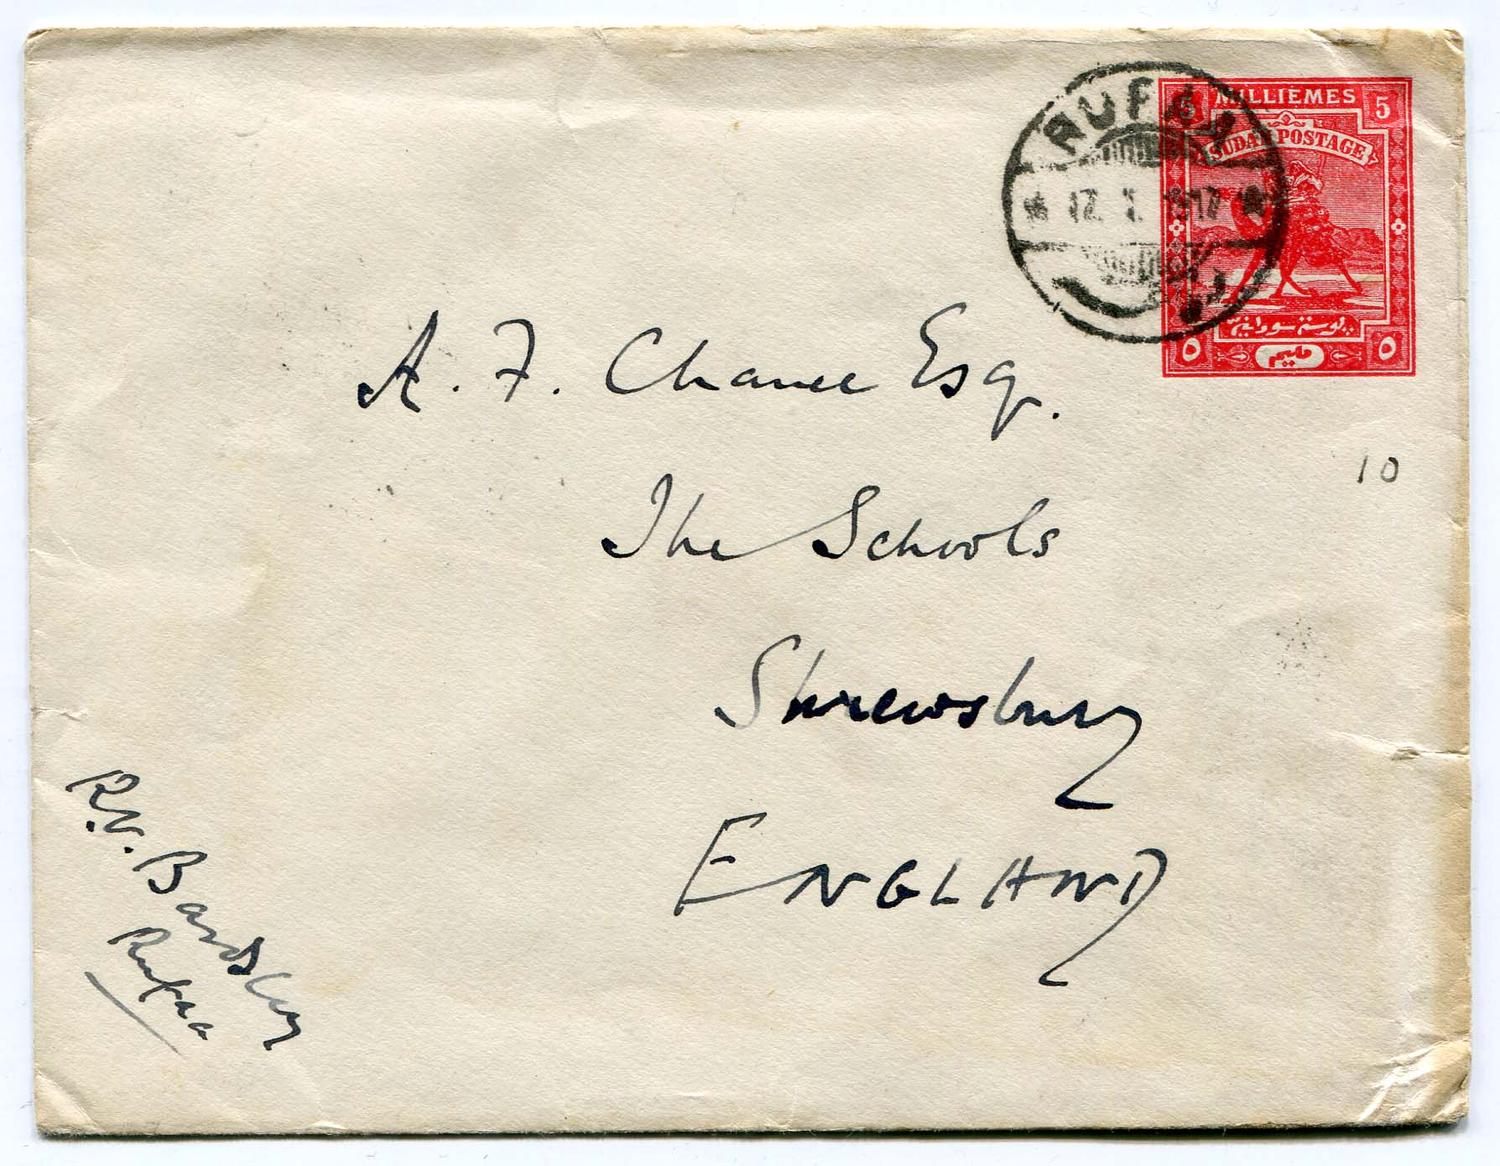 RUFAA
17. 1. 1917
5 MILLIEMES 5
SUDAN POSTAGE
پوسته سودانية
٥ مليم ٥
A. F. Chance Esq.
10
The Schools
Shrewsbury
ENGLAND
R.N. Bardsley
Rufaa